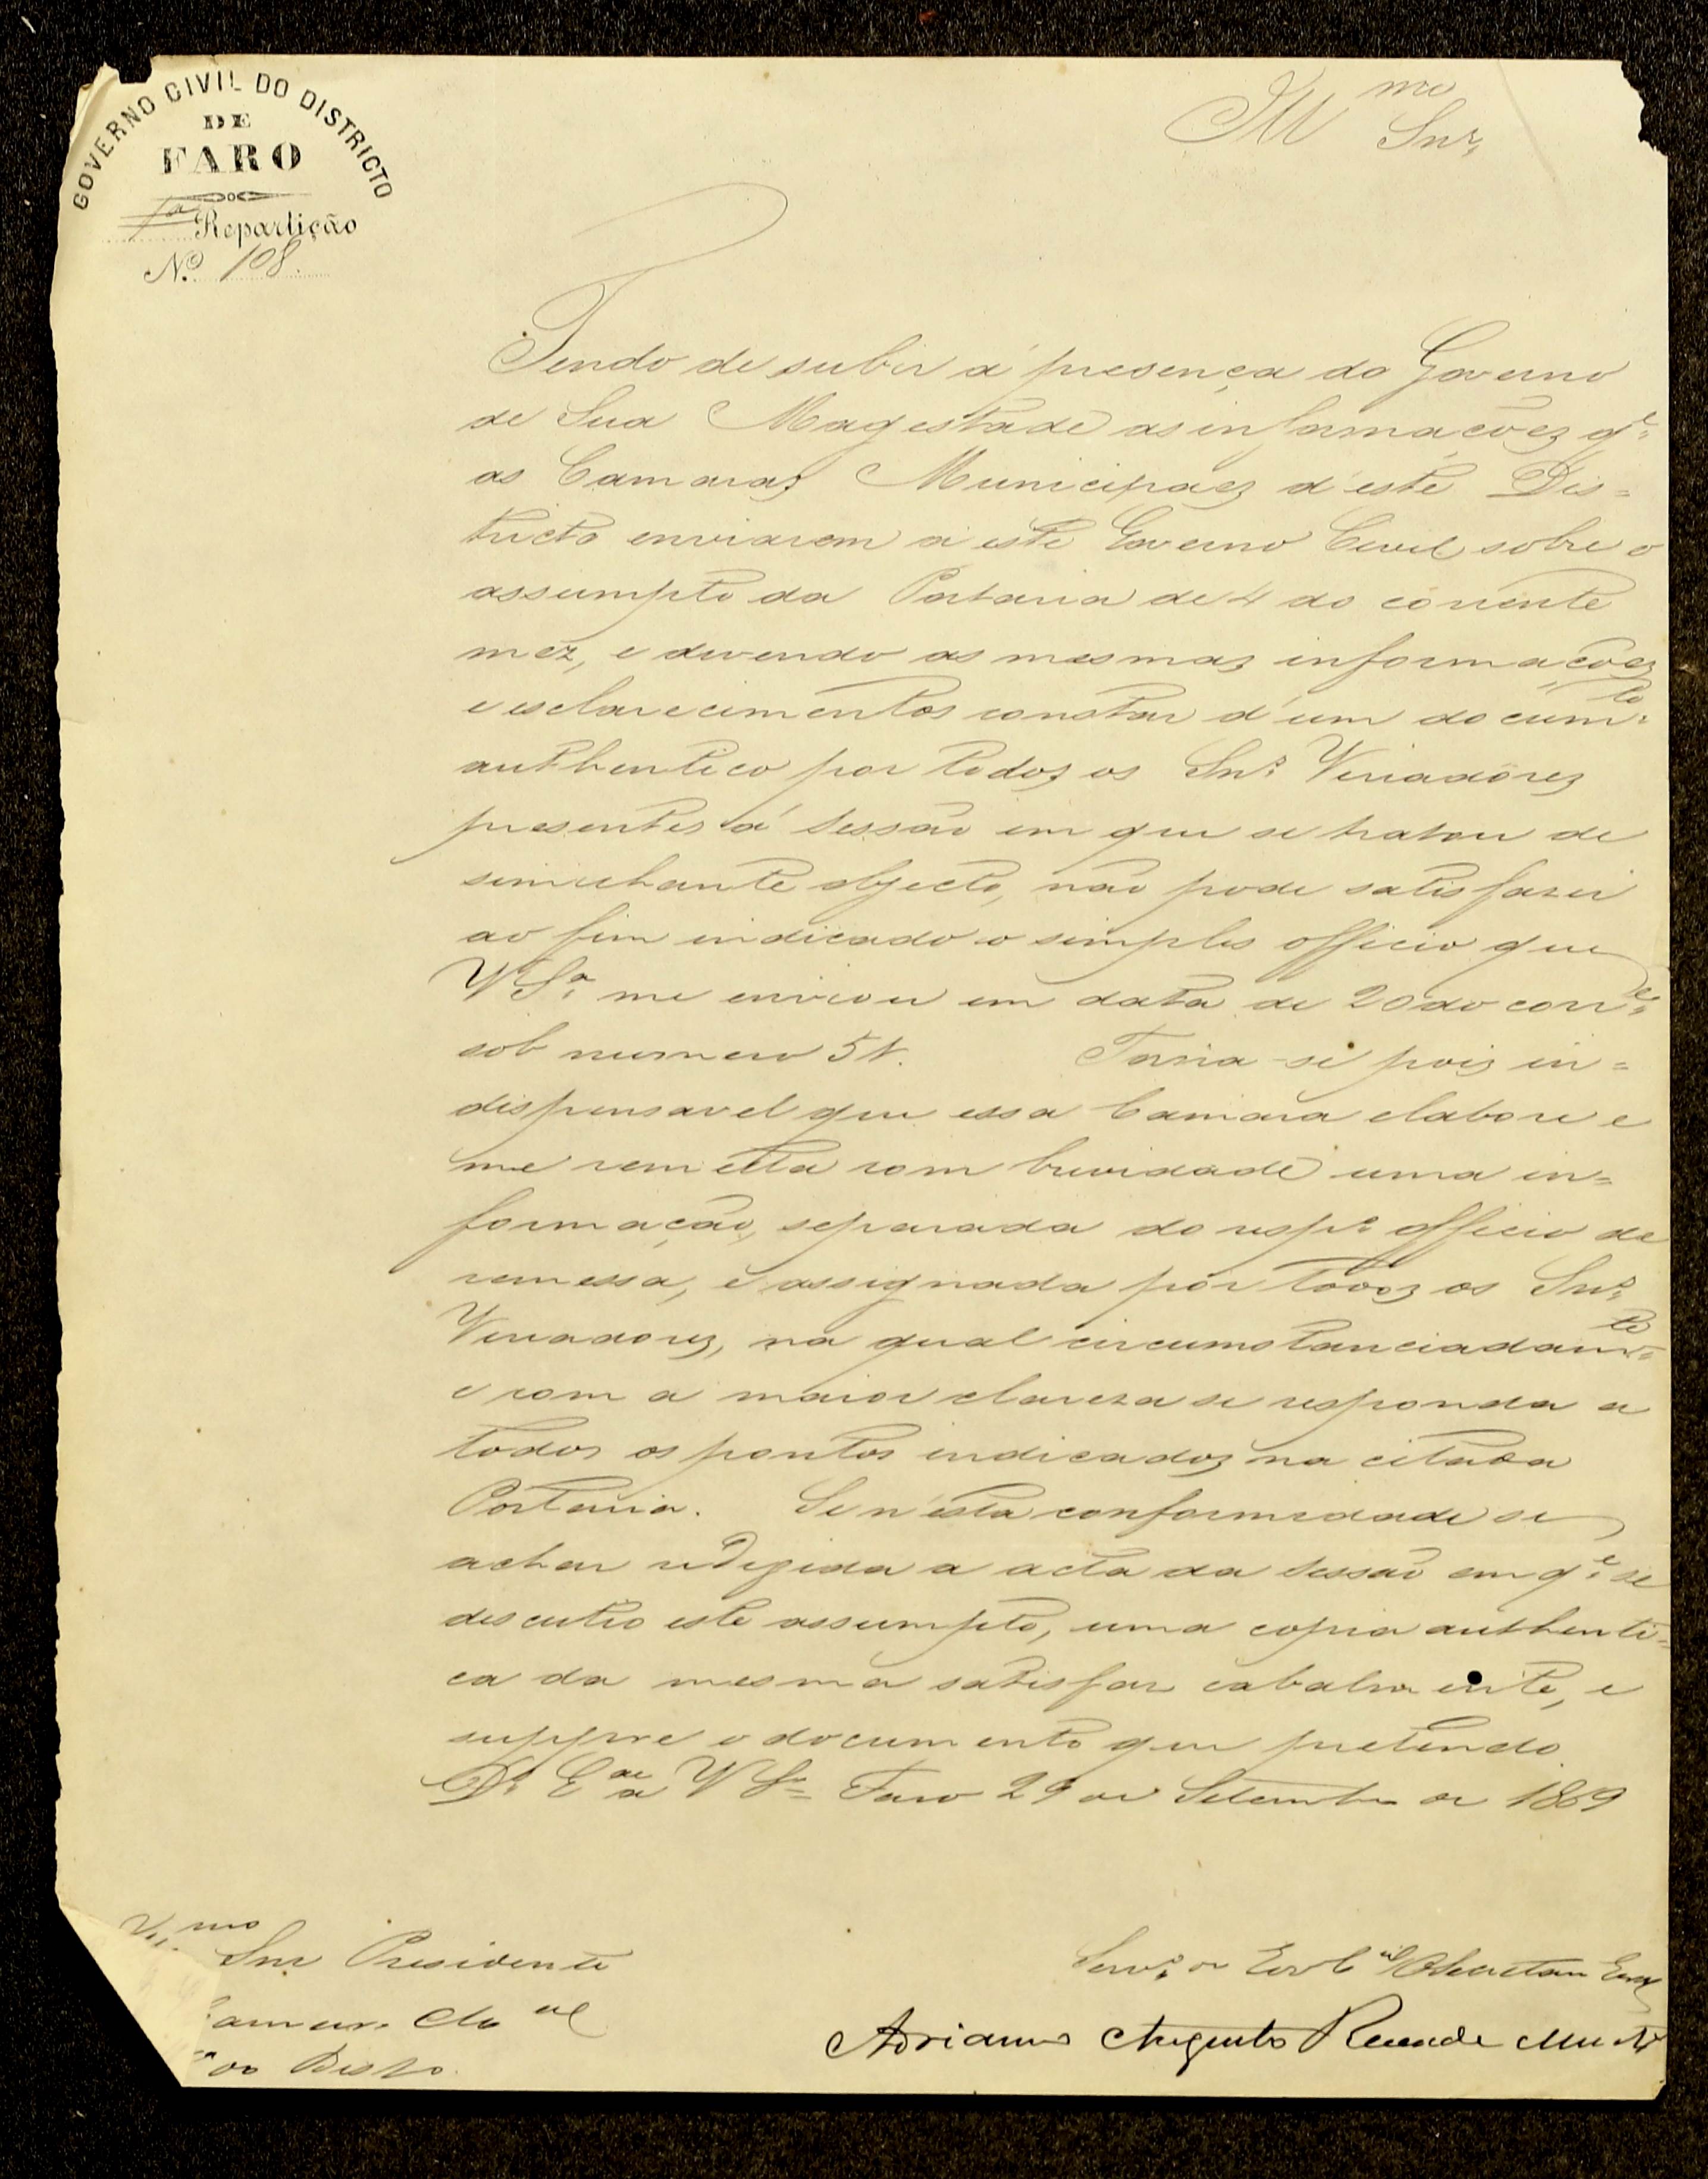 GOVERNO CIVIL DO DISTRICTO
DE
FARO
1ª Repartição
N.º 108.
Illmo Snr,
Tendo de subir á presença do Governo
de Sua Magestade as informações q.e
as Camaras Municipaes d'este Dis=
tricto enviarem a este Governo Civil sobre o
assumpto da Portaria de 4 do corrente
mez, e devendo as mesmas informações
e esclarecimentos constar d'um docum.to
authentico por todos os Snr.s Veriadores
presentes á sessão em que se tratou de
similhante objecto, não pode satisfazer
ao fim indicado o simples officio que
V S.a me enviou em data de 20 do corr.e
sob numero 51. Torna-se pois in=
dispensavel que essa Camara elabore e
me remetta com brevidade uma in=
formação, separada do resp.o officio de
remessa, e assignada por todos os Snr.s
Veriadores, na qual circumstanciadam.te
e com a maior clareza se responda a
todos os pontos indicados na citada
Portaria. Se n'esta conformidade se
achar redigida a acta da sessão em q.e se
descutio este assumpto, uma copia authenti=
ca da mesma satisfaz cabalmente, e
suppre o documento que pretendo.
D.s G.de a V S.a Faro 29 de Setembro de 1869
Illmo Snr Presidente
Camara M.al
do Bispo.
Serv.o de Gov.or Civil
Adriano Augusto Rezende